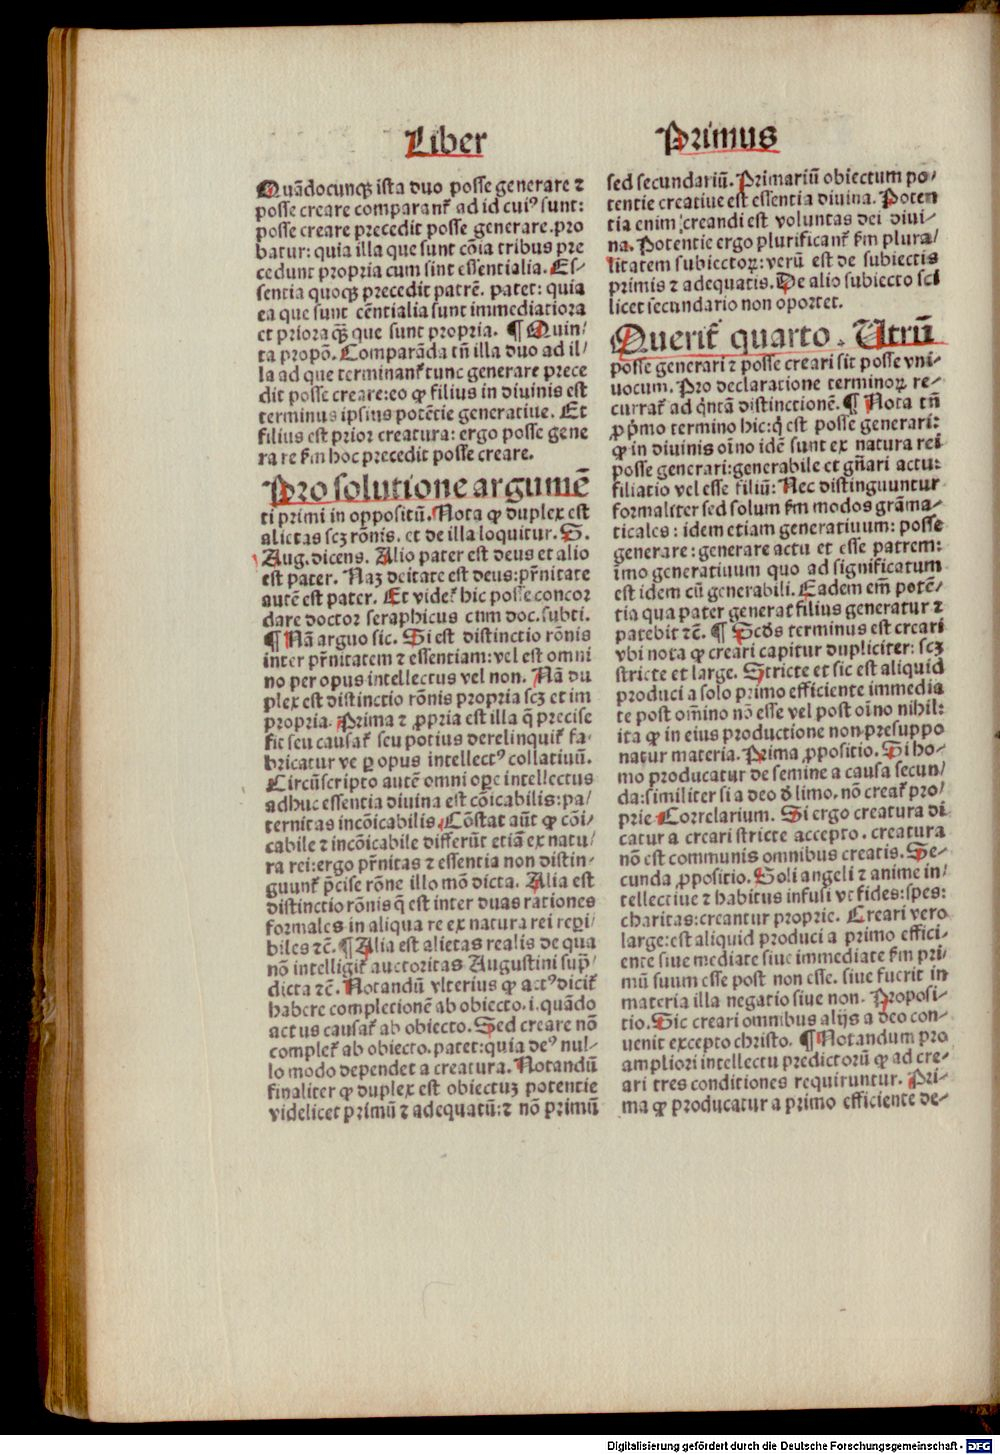 Liber
Primus
Quãdocunqꝫ ista duo posse generare ⁊
posse creare comparant᷑ ad id cuiꝰ sunt:
posse creare precedit posse generare.pro
batur: quia illa que sunt cõia tribus pre
cedunt propria cum sint essentialia. Es-
sentia quoqꝫ precedit patrẽ. patet: quia
ea que sunt cẽntialia sunt immediatiora
et priora qꝫ̃ que sunt propria. ¶ Quin/
ta propõ. Comparãda tñ illa duo ad il/
la ad que terminant᷑ tunc generare prece
dit posse creare:eo ꝙ filius in diuinis est
terminus ipsius potẽtie generatiue. Et
filius est prior creatura: ergo posse gene
ra re ẜm hoc precedit posse creare.
Pro solutione argumẽ
ti primi in oppositũ. Nota ꝙ duplex est
alietas scꝫ rõnis. et de illa loquitur. S.
Aug. dicens. Alio pater est deus et alio
est pater. Naꝫ deitate est deus:pr̃nitate
autẽ est pater. Et videt᷑ hic posse concor
dare doctor seraphicus cum doc. subti.
¶ Nã arguo sic. Si est distinctio rõnis
inter pr̃nitatem ⁊ essentiam: vel est omni
no per opus intellectus vel non. Nã du
plex est distinctio rõnis propria scꝫ et im
propria. Prima ⁊ ꝓpria est illa q̃ precise
fit seu causat᷑ seu potius derelinquit᷑ fa-
bricatur ve ꝑ opus intellectꝰ collatiuũ.
Circũscripto autẽ omni oꝑe intellectus
adhuc essentia diuina est cõicabilis:pa/
ternitas incõicabilis. Cõstat aũt ꝙ cõi/
cabile ⁊ incõicabile differũt etiã ex natu/
ra rei:ergo pr̃nitas ⁊ essentia non distin-
guunt᷑ p̃cise rõne illo mõ dicta. Alia est
distinctio rõnis q̃ est inter duas rationes
formales in aliqua re ex natura rei reꝑi/
biles ⁊c̃. ¶ Alia est alietas realis de qua
nõ intelligit᷑ auctoritas Augustini sup̃/
dicta ⁊c̃. Notandũ vlterius ꝙ actꝰ dicit᷑
habere completionẽ ab obiecto. i. quãdo
act us causat᷑ ab obiecto. Sed creare nõ
complet᷑ ab obiecto. patet:quia deꝰ nul-
lo modo dependet a creatura. Notandũ
finaliter ꝙ duplex est obiectuꝫ potentie
videlicet primũ ⁊ adequatũ:⁊ nõ primũ
sed secundariũ. Primariũ obiectum po/
tentie creatiue est essentia diuina. Poten
tia enim creandi est voluntas dei diui/
na. Potentie ergo plurificant᷑ ẜm plura/
litatem subiectoꝝ: verũ est de subiectis
primis ⁊ adequatis. De alio subiecto sci
licet secundario non oportet.
Querit᷑ quarto. Utrũ
posse generari ⁊ posse creari sit posse vni-
uocum. Pro declaratione terminoꝝ re-
currat᷑ ad q̃ntã distinctionẽ. ¶ Nota tñ
ꝓ p̃mo termino hic:q̃ est posse generari:
ꝙ in diuinis oĩno idẽ sunt ex natura rei
posse generari:generabile et gñari actu:
filiatio vel esse filiũ: Nec distinguuntur
formaliter sed solum ẜm modos grãma-
ticales: idem etiam generatiuum: posse
generare: generare actu et esse patrem:
ĩmo generatiuum quo ad significatum
est idem cũ generabili. Eadem em̃ potẽ/
tia qua pater generat filius generatur ⁊
patebit ⁊c̃. ¶ Scḋs terminus est creari
vbi nota ꝙ creari capitur dupliciter: scꝫ
stricte et large. Stricte et sic est aliquid
produci a solo primo efficiente immedia
te post om̃ino nõ esse vel post oĩno nihil:
ita ꝙ in eius productione non presuppo
natur materia. Prima ꝓpositio. Si ho-
mo producatur de semine a causa secun/
da:similiter si a deo ð limo. nõ creat᷑ pro/
prie Correlarium. Si ergo creatura di
catur a creari stricte accepto. creatura
nõ est communis omnibus creatis. Se-
cunda ꝓpositio. Soli angeli ⁊ anime in/
tellectiue ⁊ habitus infusi vt fides:spes:
charitas:creantur proprie. Creari vero
large:est aliquid produci a primo effici-
ente siue mediate siue immediate ẜm pri/
mũ suum esse post non esse. siue fuerit in
materia illa negatio siue non. Proposi-
tio. Sic creari omnibus alijs a deo con-
uenit excepto christo. ¶ Notandum pro
ampliori intellectu predictorũ ꝙ ad cre-
ari tres conditiones requiruntur. Pri-
ma ꝙ producatur a primo efficiente de-
Digitalisierung gefördert durch die Deutsche Forschungsgemeinschaft - DFG